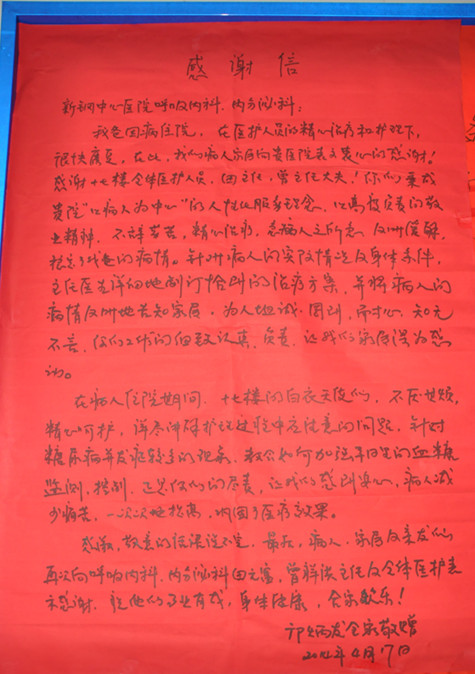 感谢信
新钢中心医院呼吸内科、内分泌科：
我爸因病住院，在医护人员的精心治疗和护理下，
很快康复，在此，我们病人家属向贵医院表衷心的感谢！
感谢十七楼全体医护人员，田主任，曾主任大夫！你们秉承
贵院“以病人为中心”的人性化服务理念，以高度负责的敬
业精神，不辞辛苦，精心治疗，急病人之所急，及时缓解，
控制了我爸的病情。针对病人的实际情况及身体条件，
主任医生详细地制订恰当的治疗方案，并将病人的
病情及时地告知家属，为人坦诚、周到、耐心，知无
不言，你们工作的细致认真、负责，让我们家属深为感
动。
在病人住院期间，十七楼的白衣天使们，不厌其烦，
精心呵护，详尽讲解护理过程中应注意的问题，针对
糖尿病并发症较多的现象，教会如何加强平日里的血糖
监测，控制，正是你们的尽责，让我们感到安心，病人减
少痛苦，一次次地提高，巩固了医疗效果。
感激，敬意的话语说不完，最后，病人、家属及亲友们
再次向呼吸内科、内分泌科田主任，曾主任及全体医护表
示感谢，祝他们事业有成，身体健康，合家欢乐！
全家敬赠
4月17日